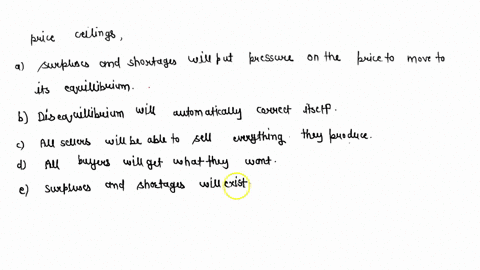 price ceilings,
a) surpluses and shortages will put pressure on the price to move to
its equilibrium.
b) Disequilibrium will automatically correct itself.
c) All sellers will be able to sell everything they produce.
d) All buyers will get what they want.
e) surpluses and shortages will exist